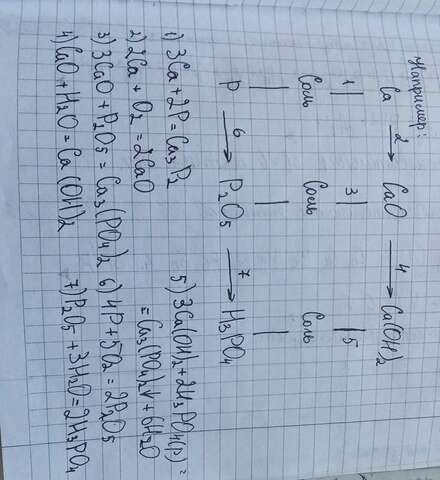 Например:
Ca 2→ CaO 4→ Ca(OH)2
1 3 5
Соль Соль Соль
P 6→ P2O5 7→ H3PO4
1) 3Ca + 2P = Ca3P2
2) 2Ca + O2 = 2CaO
3) 3CaO + P2O5 = Ca3(PO4)2
4) CaO + H2O = Ca(OH)2
5) 3Ca(OH)2 + 2H3PO4(р) =
= Ca3(PO4)2↓ + 6H2O
6) 4P + 5O2 = 2P2O5
7) P2O5 + 3H2O = 2H3PO4